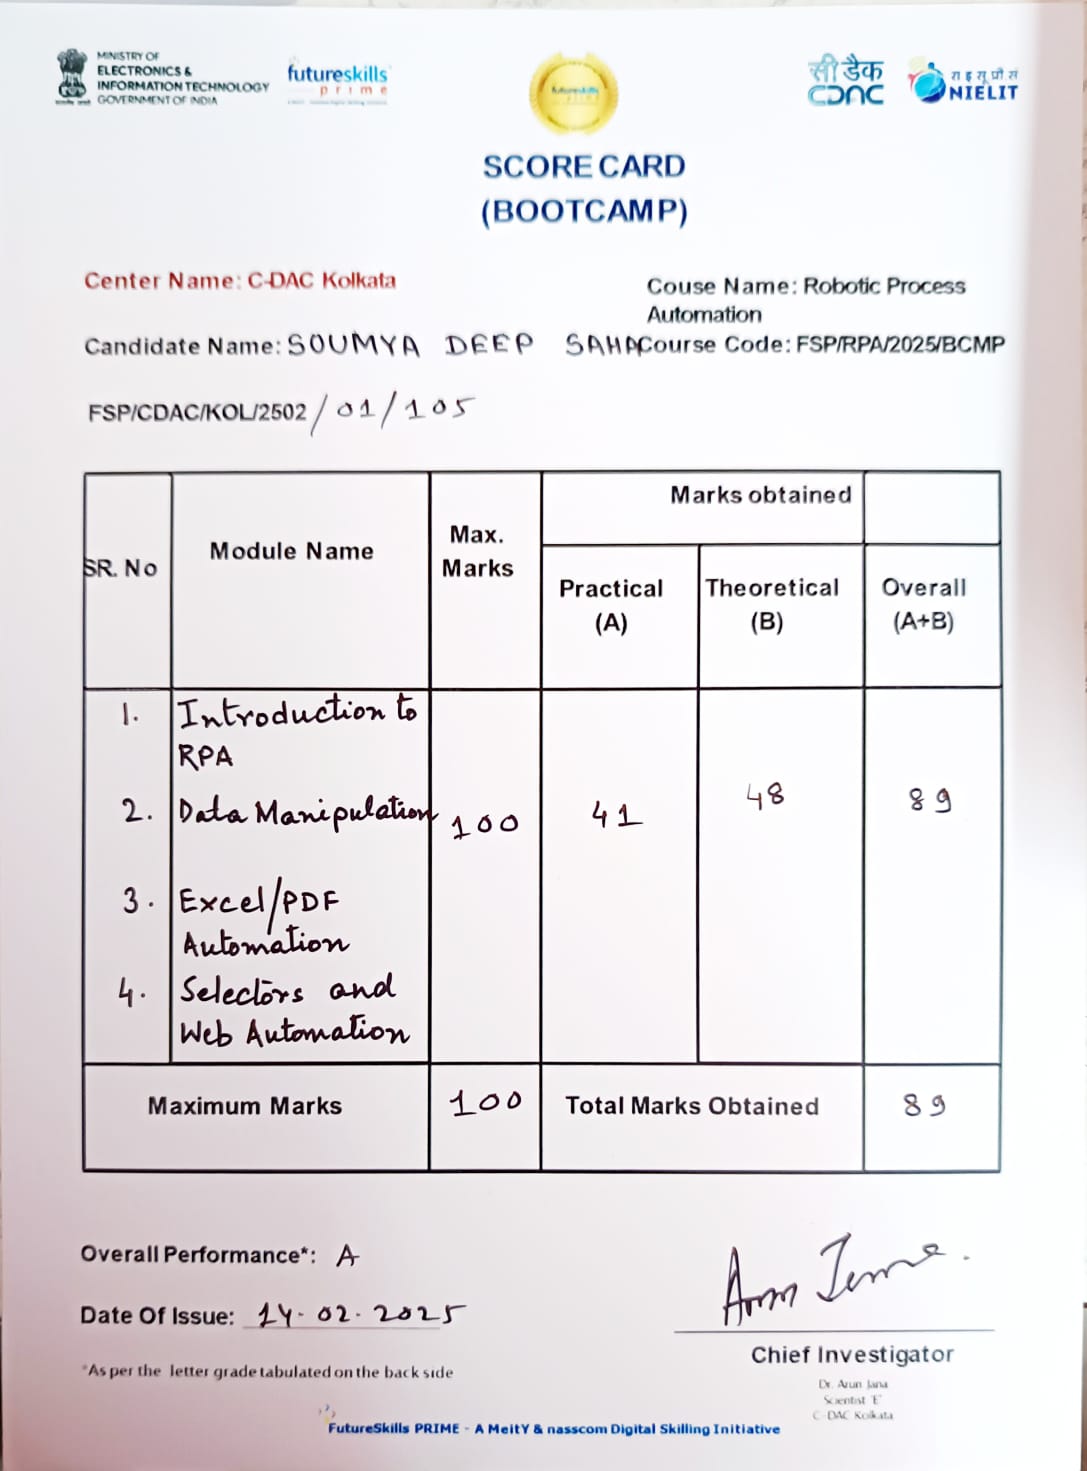 MINISTRY OF
ELECTRONICS &
INFORMATION TECHNOLOGY
GOVERNMENT OF INDIA
futureskills
prime
सी डैक
CDAC
रा इ सू प्रौ सं
NIELIT
SCORE CARD
(BOOTCAMP)
Center Name: C-DAC Kolkata
Couse Name: Robotic Process
Automation
Candidate Name: SOUMYA DEEP SAHA
Course Code: FSP/RPA/2025/BCMP
FSP/CDAC/KOL/2502/01/105
SR. No
Module Name
Max.
Marks
Marks obtained
Practical
(A)
Theoretical
(B)
Overall
(A+B)
1. Introduction to
RPA
2. Data Manipulation
100 41 48 89
3. Excel/PDF
Automation
4. Selectors and
Web Automation
Maximum Marks 100 Total Marks Obtained 89
Overall Performance*: A
Date Of Issue: 14-02-2025
*As per the letter grade tabulated on the back side
Chief Investigator
Dr. Arun Jana
Scientist 'E'
C-DAC Kolkata
FutureSkills PRIME - A MeitY & nasscom Digital Skilling Initiative